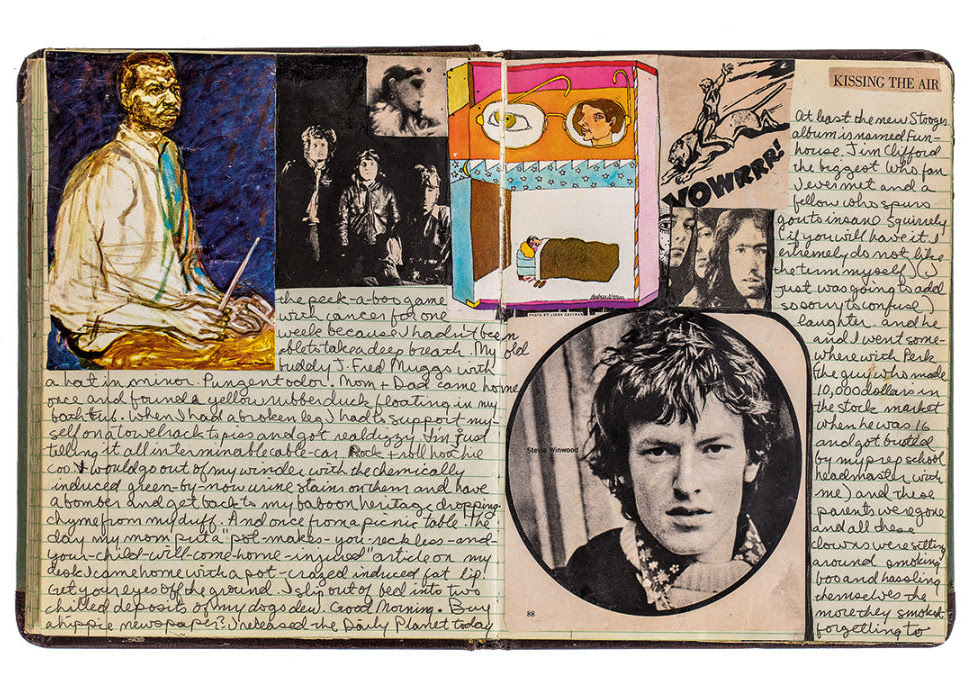 the peek-a-boo game
with cancer for one
week because I hadn't been
able to take a deep breath. My old
buddy J. Fred Muggs with
a hat in minor. Pungent odor. Mom + Dad came home
once and found a yellow rubber duck floating in my
bathtub. When I had a broken leg I had to support my-
self on a towel rack to piss and got real dizzy I'm just
telling it all interminable cable-car. Rock + roll hootchie
coo I would go out of my winder with the chemically
induced green-by-now urine stains on them and have
a bomber and get back to my baboon heritage dropping
chyme from my duff. And once from a picnic table. The
day my mom put a "pot-makes-you-reckless-and-
your-child-will-come-home-injured" article on my
desk I came home with a pot-crazed induced fat lip.
Get your eyes off the ground. I slip out of bed into two
chilled deposits of my dogs dew. Good Morning. Buy
a hippie newspaper? I released the Daily Planet today
PHOTO BY LINDA EASTMAN
VOWRRR!
Stevie Winwood
88
KISSING THE AIR
At least the new Stooges
album is named Fun-
house. Jim Clifford
the biggest Who fan
I ever met and a
fellow who spurs
gouts insane squirrely
(if you will have it. I
extremely do not like
the term myself) (I
just was going to add
so sorry to confuse)
laughter. and he
and I went some-
where with Perk
the guy who made
10,000 dollars in
the stock market
when he was 16
and got busted
by my prep school
headmaster with
me) and these
parents were gone
and all these
clowns were sitting
around smoking
boo and hassling
themselves the
more they smoked
forgetting to